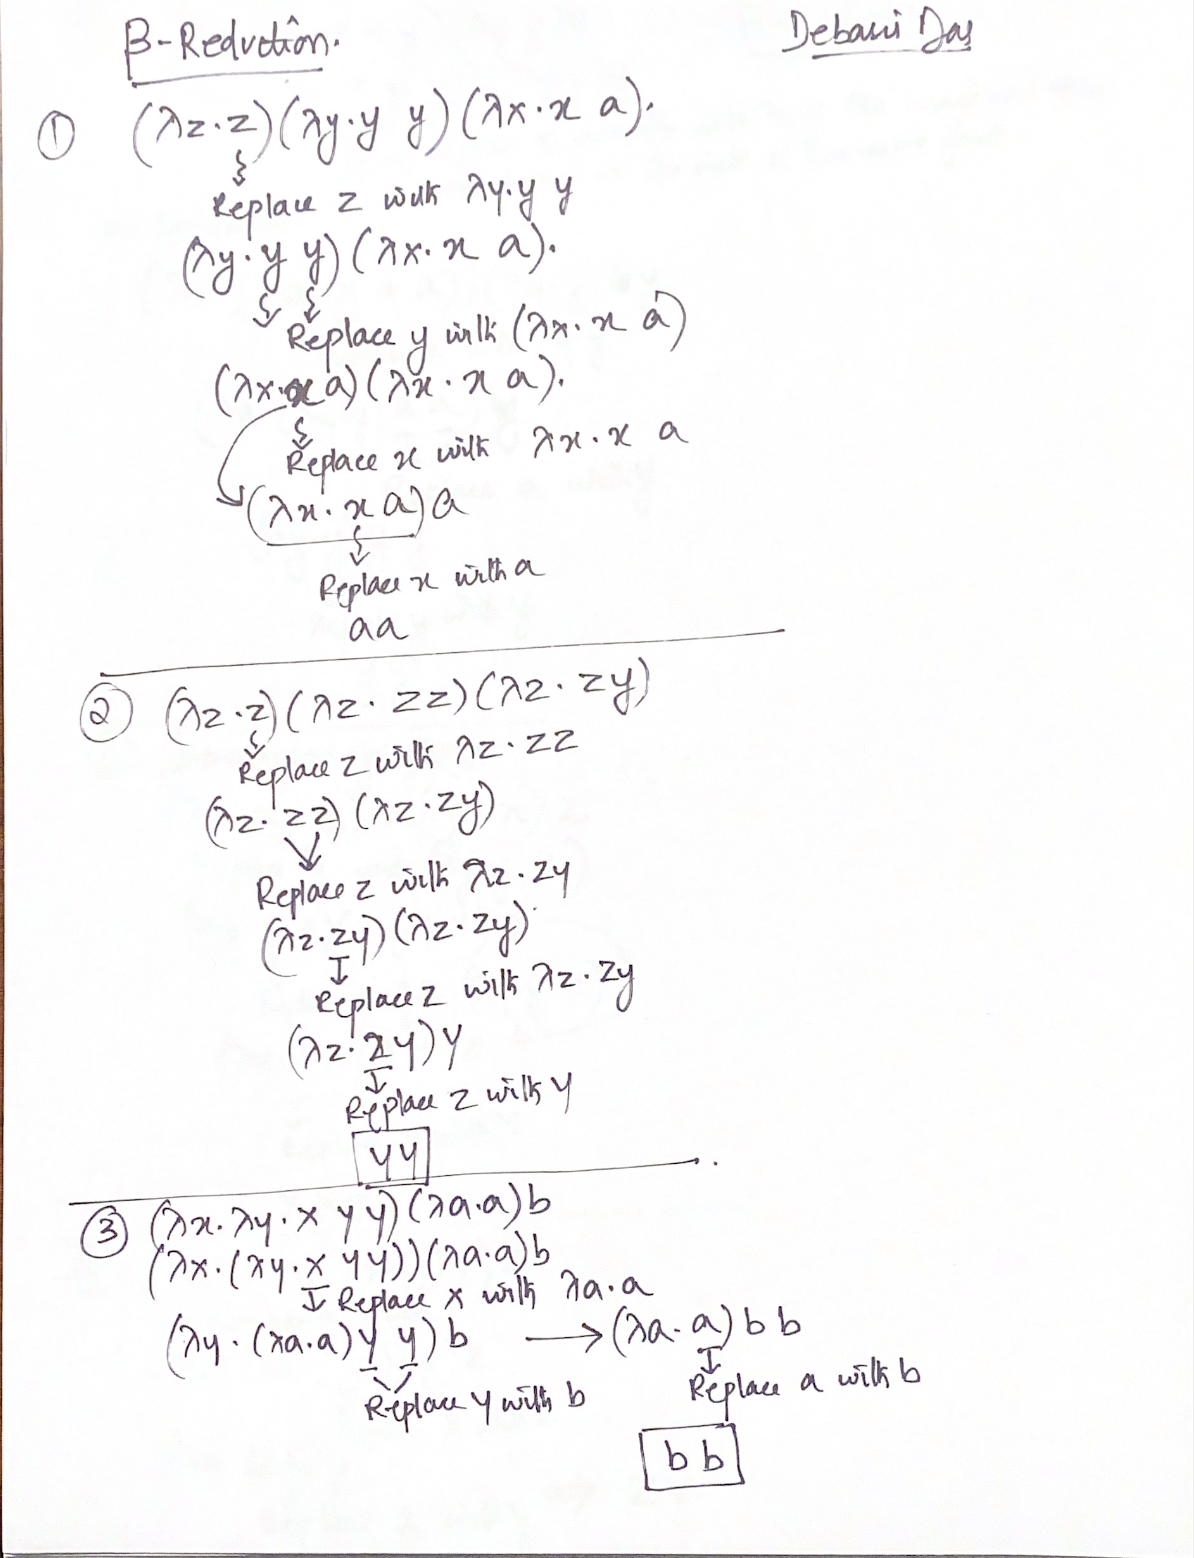 β-Reduction.
Debani Das
① (λz.z)(λy.y y)(λx.x a).
Replace z with λy.y y
(λy.y y)(λx.x a).
Replace y with (λx.x a)
(λx.x a)(λx.x a).
Replace x with λx.x a
(λx.x a)a
Replace x with a
aa
② (λz.z)(λz.zz)(λz.zy)
Replace z with λz.zz
(λz.zz)(λz.zy)
Replace z with λz.zy
(λz.zy)(λz.zy)
Replace z with λz.zy
(λz.zy)y
Replace z with y
yy
③ (λx.λy.x y y)(λa.a)b
(λx.(λy.x yy))(λa.a)b
Replace x with λa.a
(λy.(λa.a)y y)b → (λa.a)bb
Replace y with b
Replace a with b
bb